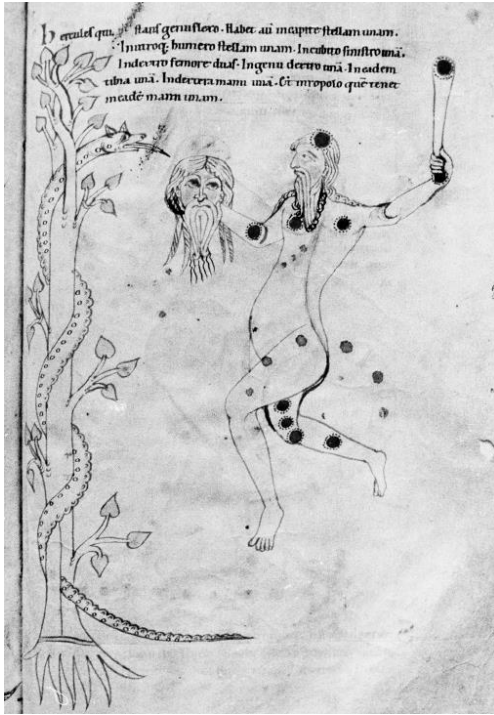 Hercules qui, et stans genuflexo. Habet aū in capite stellam unam.
In utroq; humero stellam unam. In cubito sinistro unā.
In dextro femore duas. In genu dextro unā. In eadem
tibia unā. In dextera manu unā. Et in ropolo quē tenet
in eadē manu unam.